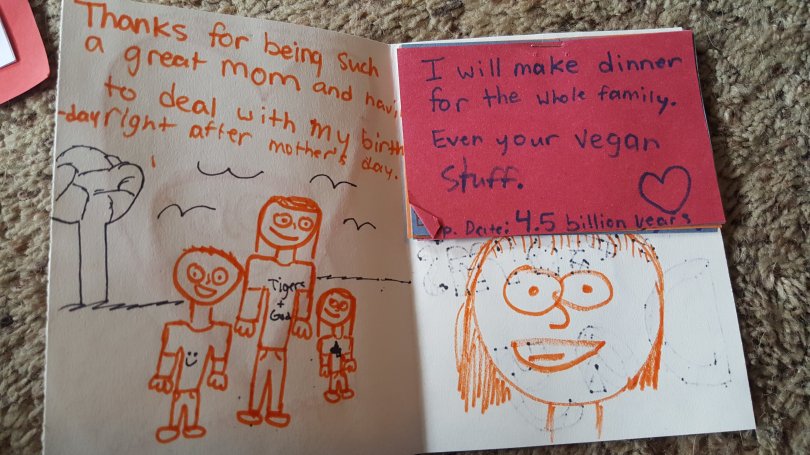 Thanks for being such
a great mom and havi
to deal with my birth
-day right after mother's day.
Tigers
+
God
I will make dinner
for the whole family.
Even your vegan
Stuff.
p. Date: 4.5 billion years